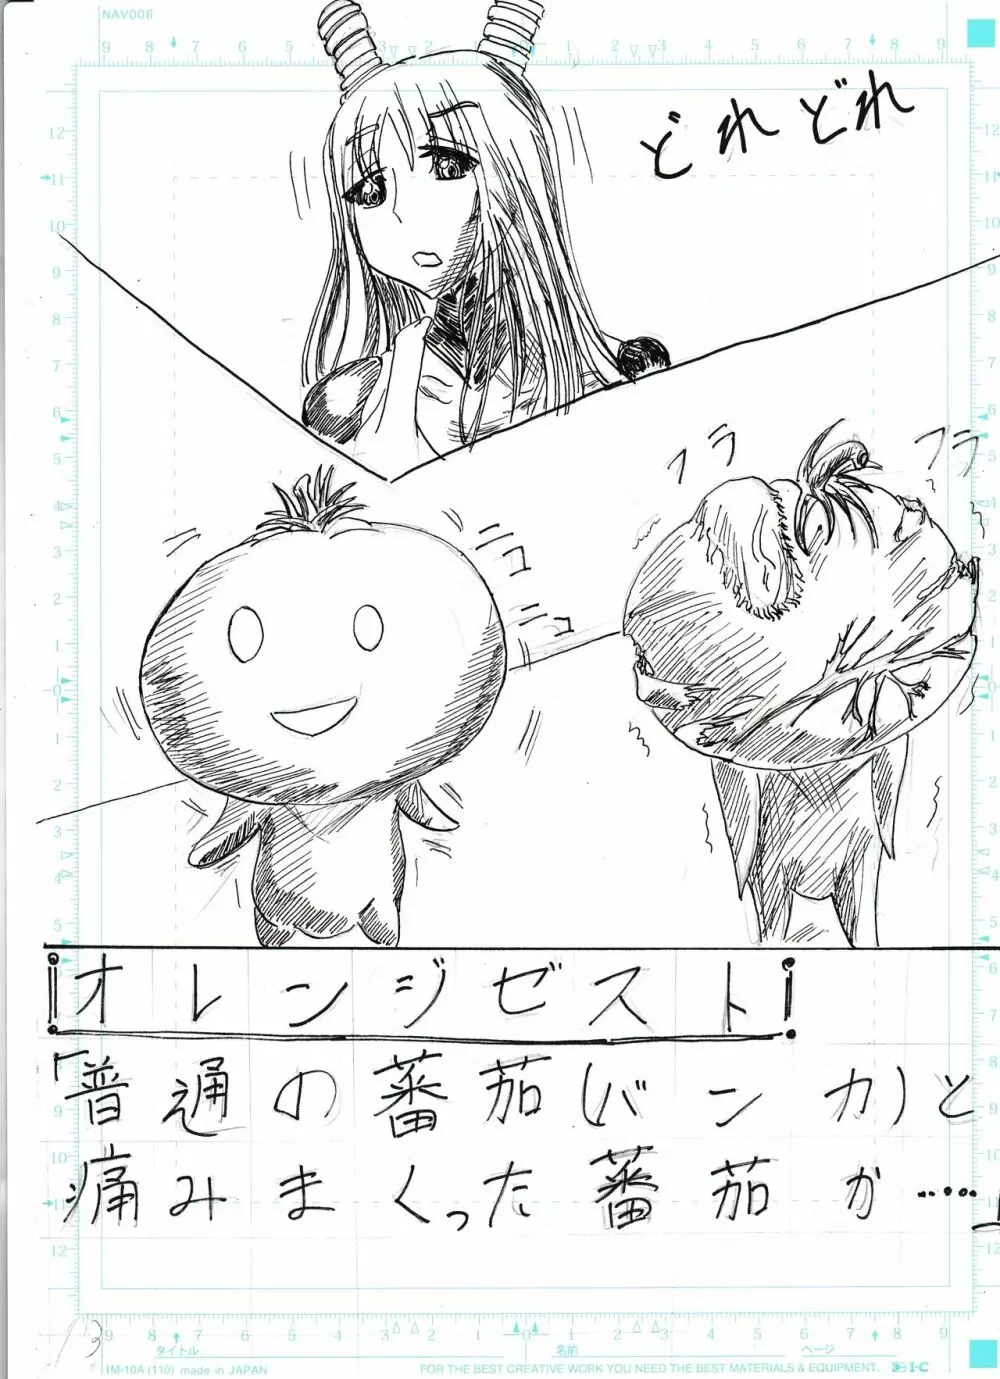 NAV006
どれどれ
フラ
フラ
ニコ
ニコ
オレンジゼスト
「普通の蕃茄(バンカ)と
痛みまくった蕃茄か……」
タイトル
名前
ページ
IM-10A (110) made in JAPAN
FOR THE BEST CREATIVE WORK YOU NEED THE BEST MATERIALS & EQUIPMENT.
I·C